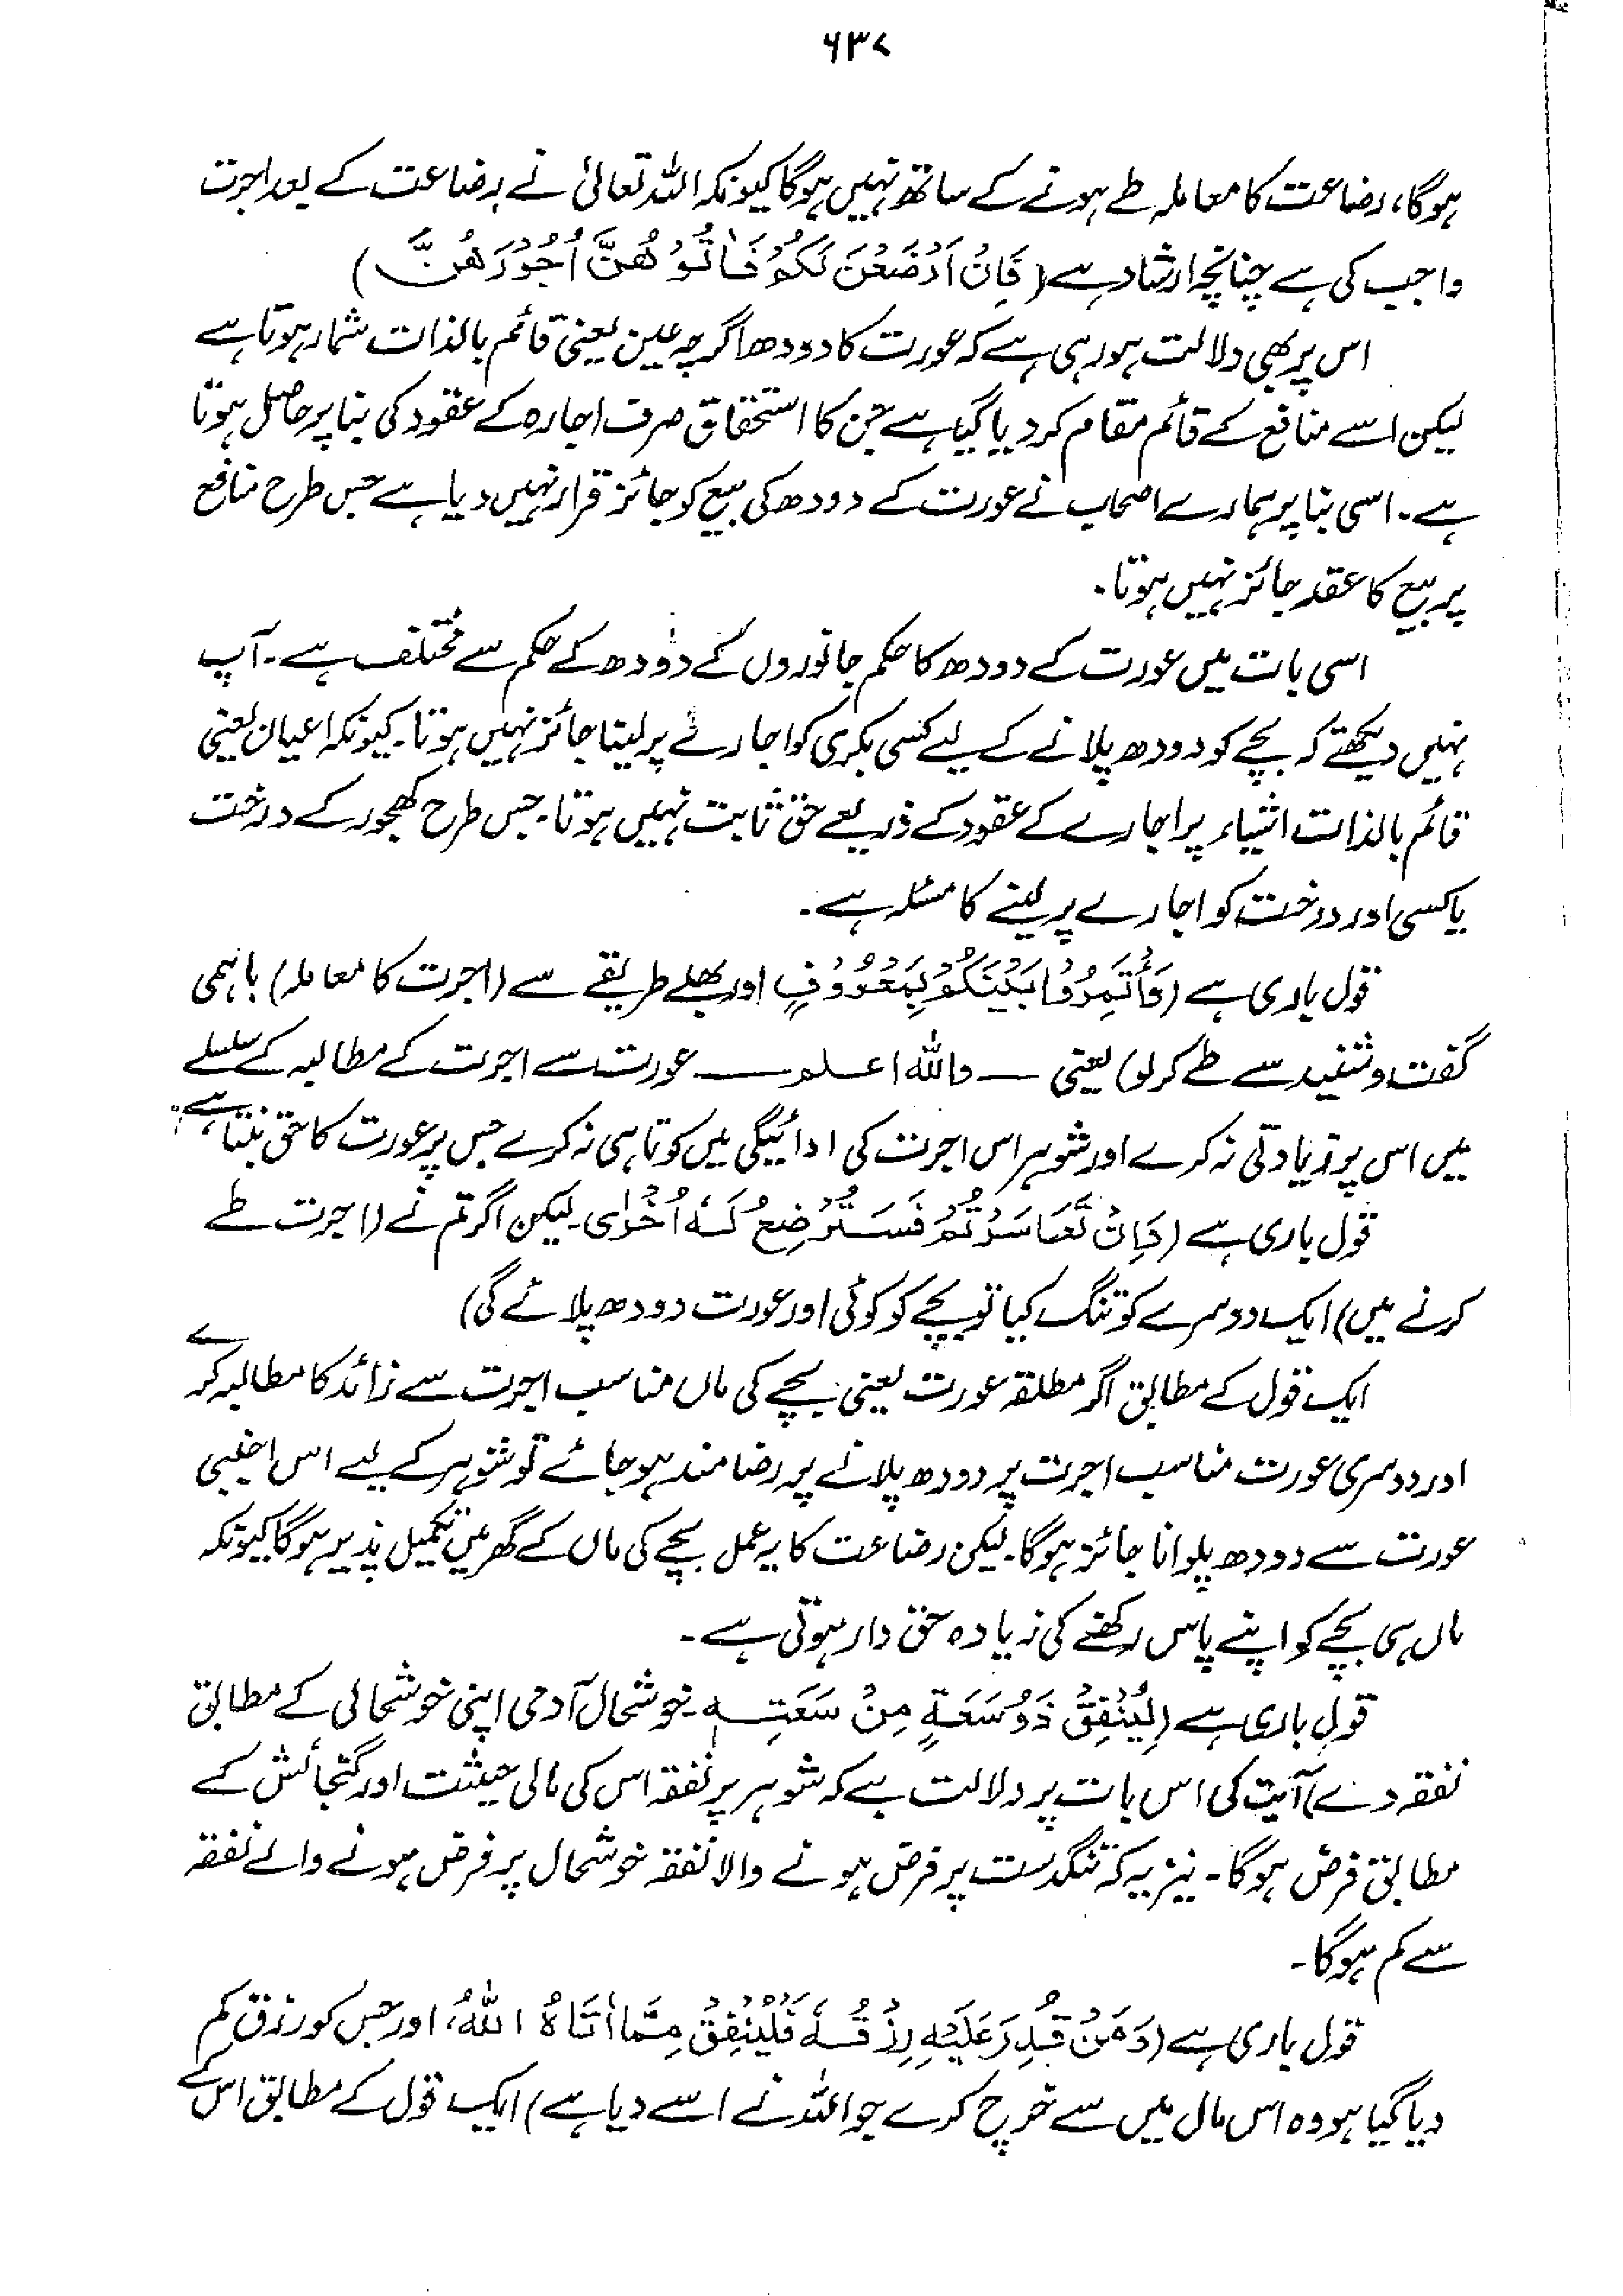 ۶۳۷
ہوگا، رضاعت کا معاملہ طے ہونے کے ساتھ نہیں ہوگا کیونکہ اللہ تعالیٰ نے رضاعت کے بعد اجرت
واجب کی ہے چنانچہ ارشاد ہے (فَاِنْ اَرْضَعْنَ لَكُمْ فَاٰتُوْهُنَّ اُجُوْرَهُنَّ)
اس پر بھی دلالت ہو رہی ہے کہ عورت کا دودھ اگرچہ عین یعنی قائم بالذات شمار ہوتا ہے
لیکن اسے منافع کے قائم مقام کر دیا گیا ہے جن کا استحقاق صرف اجارہ کے عقود کی بنا پر حاصل ہوتا
ہے۔ اسی بنا پر ہمارے اصحاب نے عورت کے دودھ کی بیع کو جائز قرار نہیں دیا ہے جس طرح منافع
پر بیع کا عقد جائز نہیں ہوتا۔
اسی بات میں عورت کے دودھ کا حکم جانوروں کے دودھ کے حکم سے مختلف ہے۔ آپ
نہیں دیکھتے کہ بچے کو دودھ پلانے کے لیے کسی بکری کو اجارے پر لینا جائز نہیں ہوتا۔ کیونکہ اعیان یعنی
قائم بالذات اشیاء پر اجارے کے عقود کے ذریعے حق ثابت نہیں ہوتا۔ جس طرح کھجور کے درخت
یا کسی اور درخت کو اجارے پر لینے کا مسئلہ ہے۔
قول باری ہے (وَأْتَمِرُوْا بَيْنَكُمْ بِمَعْرُوْفٍ اور بھلے طریقے سے (اجرت کا معاملہ) باہمی
گفت و شنید سے طے کر لو) یعنی ـــ واللہ اعلم ـــ عورت سے اجرت کے مطالبہ کے سلسلے
میں اس پر زیادتی نہ کرے اور شوہر اس اجرت کی ادائیگی میں کوتاہی نہ کرے جس پر عورت کا حق بنتا ہے
قول باری ہے (وَاِنْ تَعَاسَرْتُمْ فَسَتُرْضِعُ لَهٗ اُخْرٰى۔ لیکن اگر تم نے (اجرت طے
کرنے میں) ایک دوسرے کو تنگ کیا تو بچے کو کوئی اور عورت دودھ پلائے گی)
ایک قول کے مطابق اگر مطلقہ عورت یعنی بچے کی ماں مناسب اجرت سے زائد کا مطالبہ کرے
اور دوسری عورت مناسب اجرت پر دودھ پلانے پر رضامند ہو جائے تو شوہر کے لیے اس اجنبی
عورت سے دودھ پلوانا جائز ہوگا۔ لیکن رضاعت کا یہ عمل بچے کی ماں کے گھر میں تکمیل پذیر ہوگا کیونکہ
ماں ہی بچے کو اپنے پاس رکھنے کی زیادہ حق دار ہوتی ہے۔
قول باری ہے (لِيُنْفِقْ ذُوْ سَعَةٍ مِنْ سَعَتِهٖ۔ خوشحال آدمی اپنی خوشحالی کے مطابق
نفقہ دے) آیت کی اس بات پر دلالت ہے کہ شوہر پر نفقہ اس کی مالی حیثیت اور گنجائش کے
مطابق فرض ہوگا۔ نیز یہ کہ تنگدست پر فرض ہونے والا نفقہ خوشحال پر فرض ہونے والے نفقہ
سے کم ہوگا۔
قول باری ہے (وَمَنْ قُدِرَ عَلَيْهِ رِزْقُهٗ فَلْيُنْفِقْ مِمَّا اٰتَاهُ اللهُ، اور جس کو رزق کم
دیا گیا ہو وہ اس مال میں سے خرچ کرے جو اللہ نے اسے دیا ہے) ایک قول کے مطابق اس کے